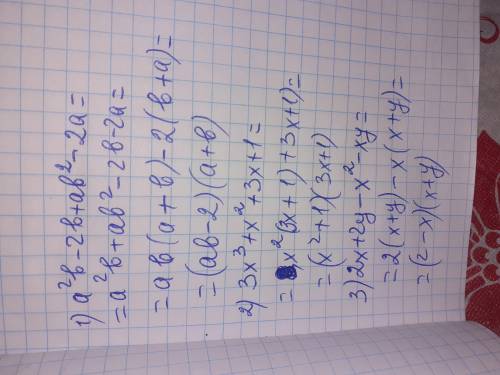 1) a²b-2b+ab²-2a=
=a²b+ab²-2b-2a=
=ab(a+b)-2(b+a)=
=(ab-2)(a+b)
2) 3x³+x²+3x+1=
=x²(3x+1)+3x+1)=
=(x²+1)(3x+1)
3) 2x+2y-x²-xy=
=2(x+y)-x(x+y)=
=(2-x)(x+y)